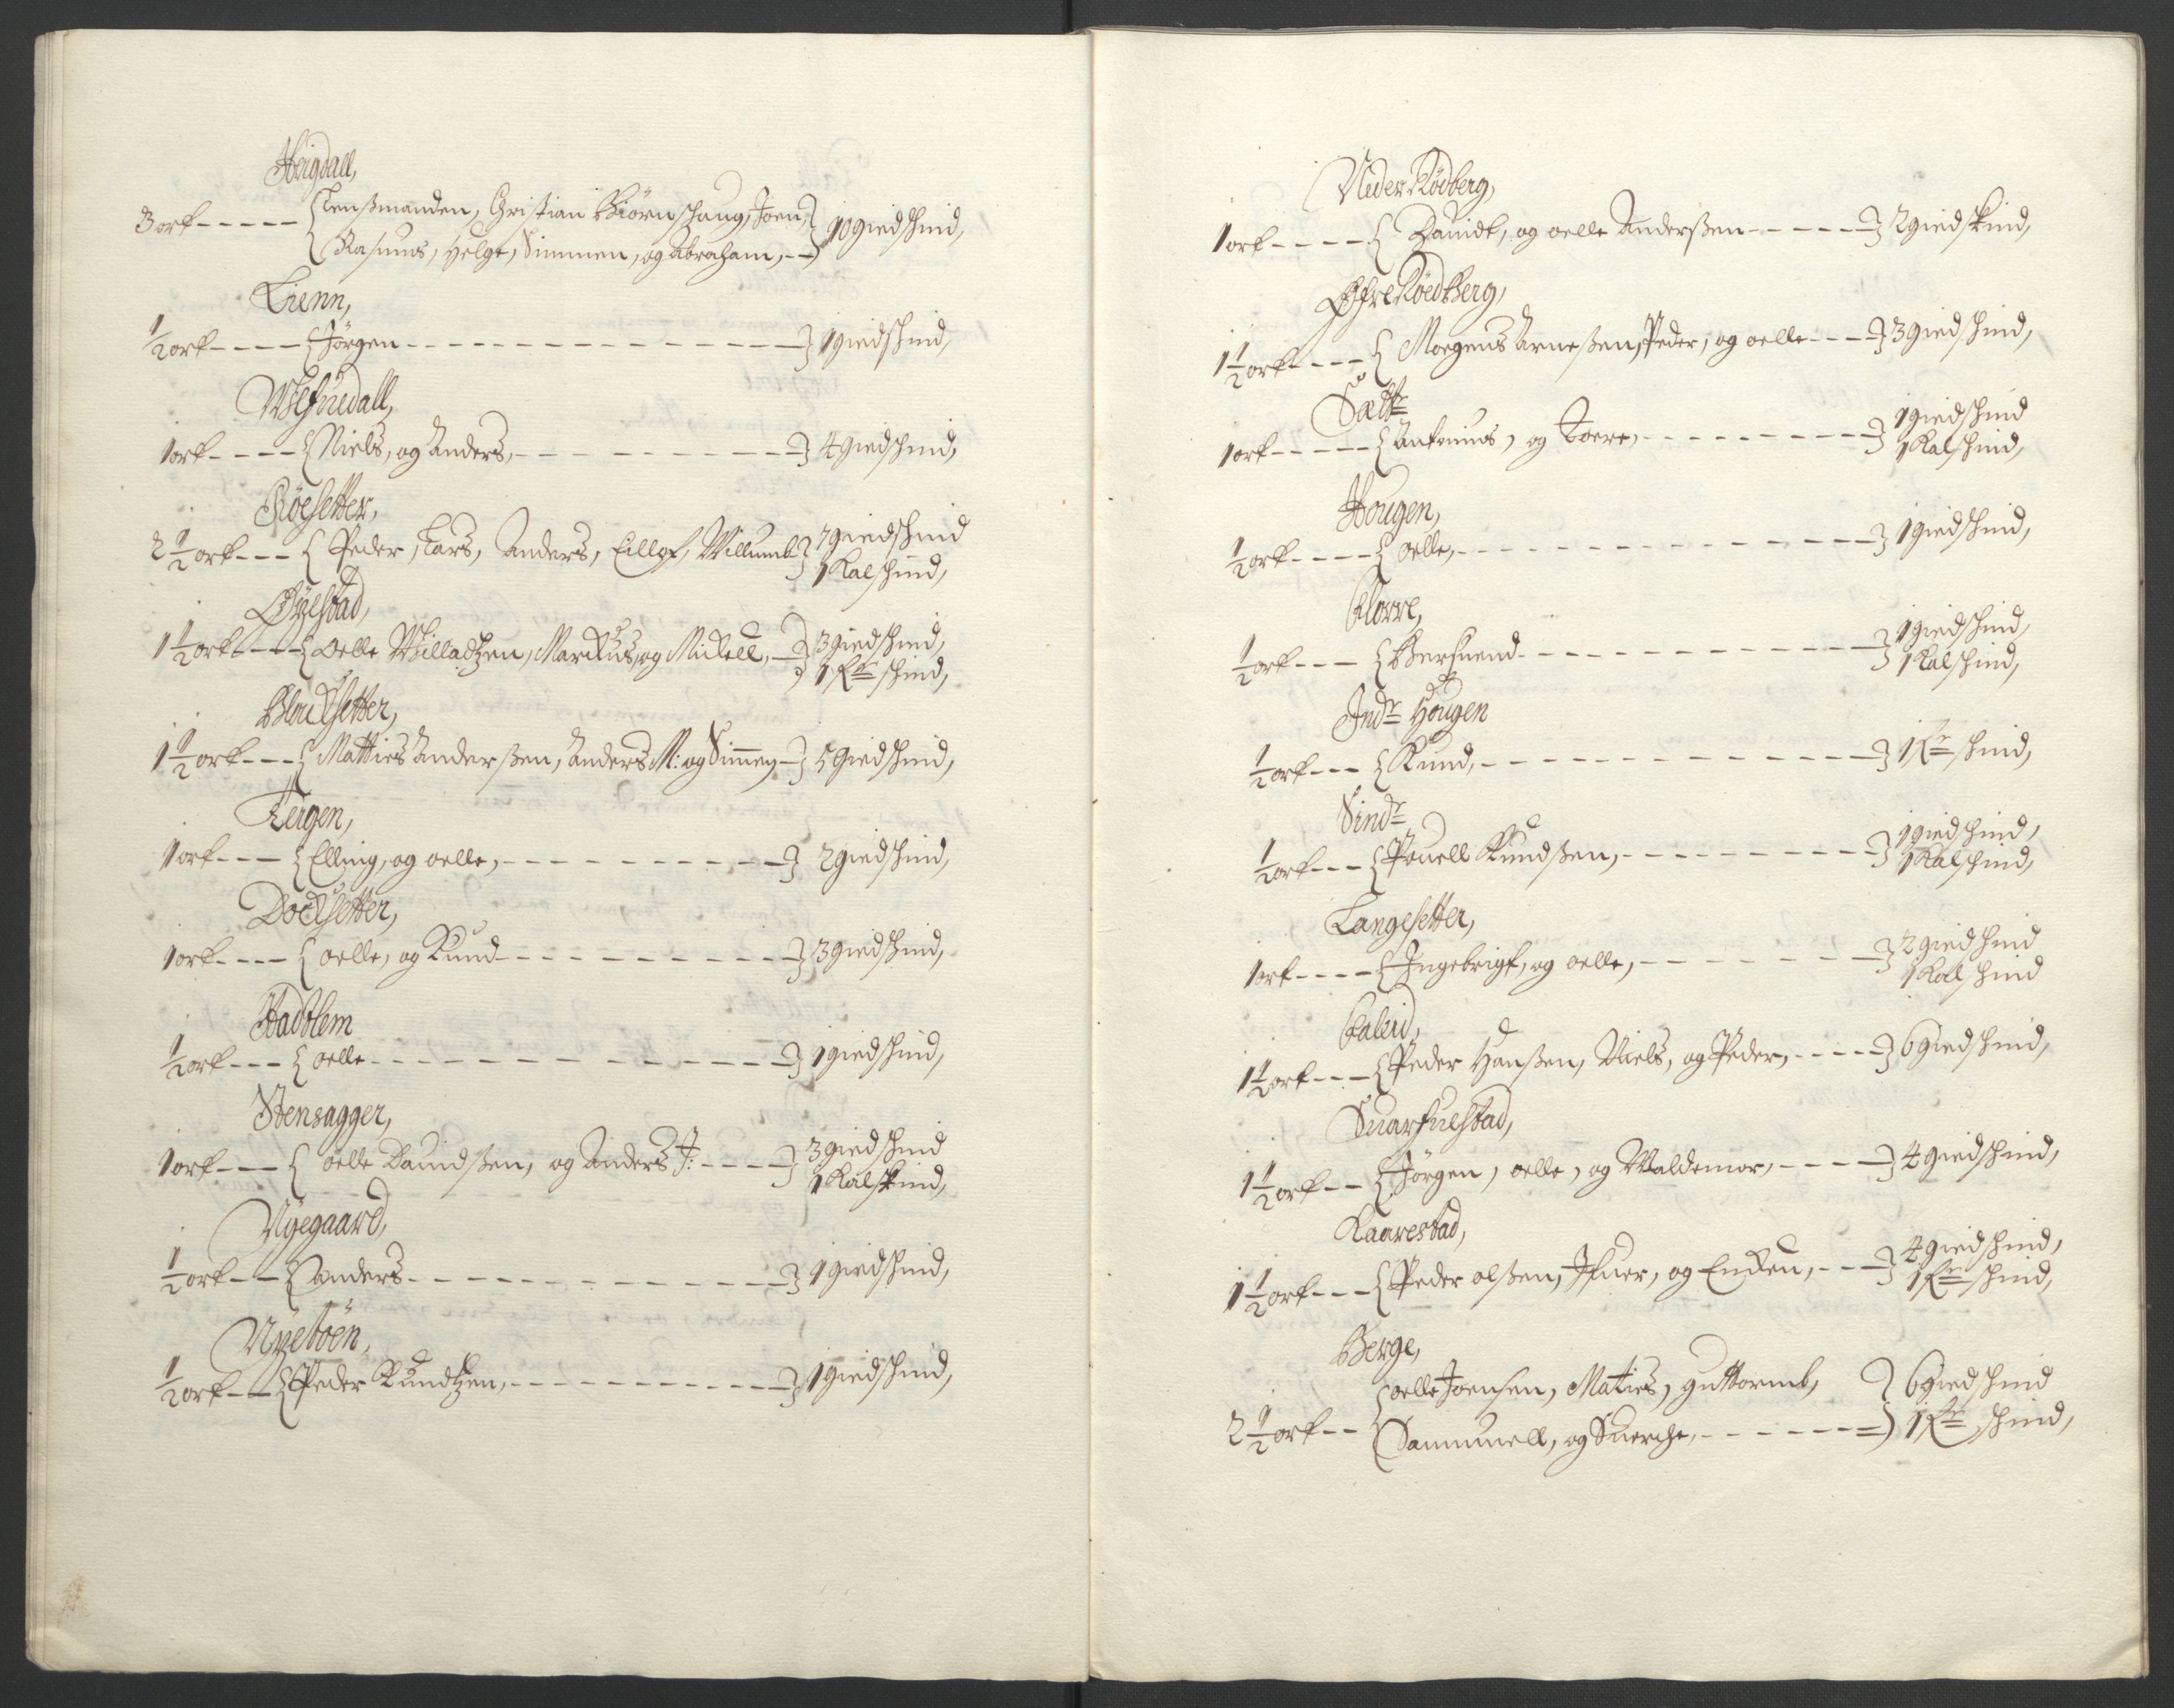 Heigdall,
3 ort ----- { Lensmanden, Christian Biørnschaug, Joen,
Rasmus, Helge, Simmen, og Abraham, -- } 10 giedschind,
Lienn,
1/2 ort ---- { Jørgen ---- } 1 giedschind,
Wefuedall,
1 ort ---- { Niels, og Anders, ---- } 4 giedschind,
Røesetter,
2 1/2 ort --- { Peder, Lars, Anders, Eillof, Willumb } 7 giedschind
1 Kalschind,
Øyestad,
1 1/2 ort ---- { Oelle Willadtzen, Markus, og Mickell, -- } 3 giedschind,
1 Fr schind,
Blacksetter,
1 1/2 ort --- { Matties Anderßen, Anders M: og Simen -- } 5 giedschind,
Teigen,
1 ort --- { Elling, og oelle, ---- } 2 giedschind,
Docksetter,
1 ort ---- { oelle, og Knud ---- } 3 giedschind,
Hadtlem
1/2 ort --- { oelle ---- } 1 giedschind,
Stensagger,
1 ort --- { oelle Dauidßen, og Anders J: ---- } 3 giedschind
1 Kalskind,
Nyegaard,
1/2 ort -- { Anders ---- } 1 giedschind,
Nyebøen,
1/2 ort -- { Peder Knudtzen, ---- } 1 giedschind,
Neder Rødberg,
1 ort ---- { Dauidt, og oelle Anderßen ---- } 2 giedskind,
Øfre Røedberg,
1 1/2 ort ---- { Moegens Arneßen, Peder, og oelle --- } 3 giedschind,
Sættr
1 ort ----- { Anfenius, og Toere, ---- } 1 giedschind
1 Kalschind,
Hougen,
1/2 ort ---- { oelle, ---- } 1 giedschind,
Klovve,
1/2 ort --- { Berfuend ---- } 1 giedschind,
1 Kalschind,
Indr Hougen
1/2 ort --- { Knud, ---- } 1 Fr schind,
Sindr
1/2 ort --- { Pouell Knudßen, ---- } 1 giedschind,
1 Kalschind,
Langesetter,
1 ort ---- { Ingebrigt, og oelle, ---- } 2 giedschind
1 Kalschind
Kaleid,
1 1/2 ort --- { Peder Hanßen, Niels, og Peder, ---- } 6 giedschind,
Suarfuestad,
1 1/2 ort -- { Jørgen, oelle, og Waldemor, ---- } 4 giedschind,
Kaarestad,
1 1/2 ort --- { Peder olßen, Ifuer, og Encken, --- } 4 giedschind,
1 Fr schind,
Berge,
2 1/2 ort -- { oelle Joensen, Maties, guttormb, } 6 giedschind
Sammuell, og Suerche, ---- } 1 Fr schind,